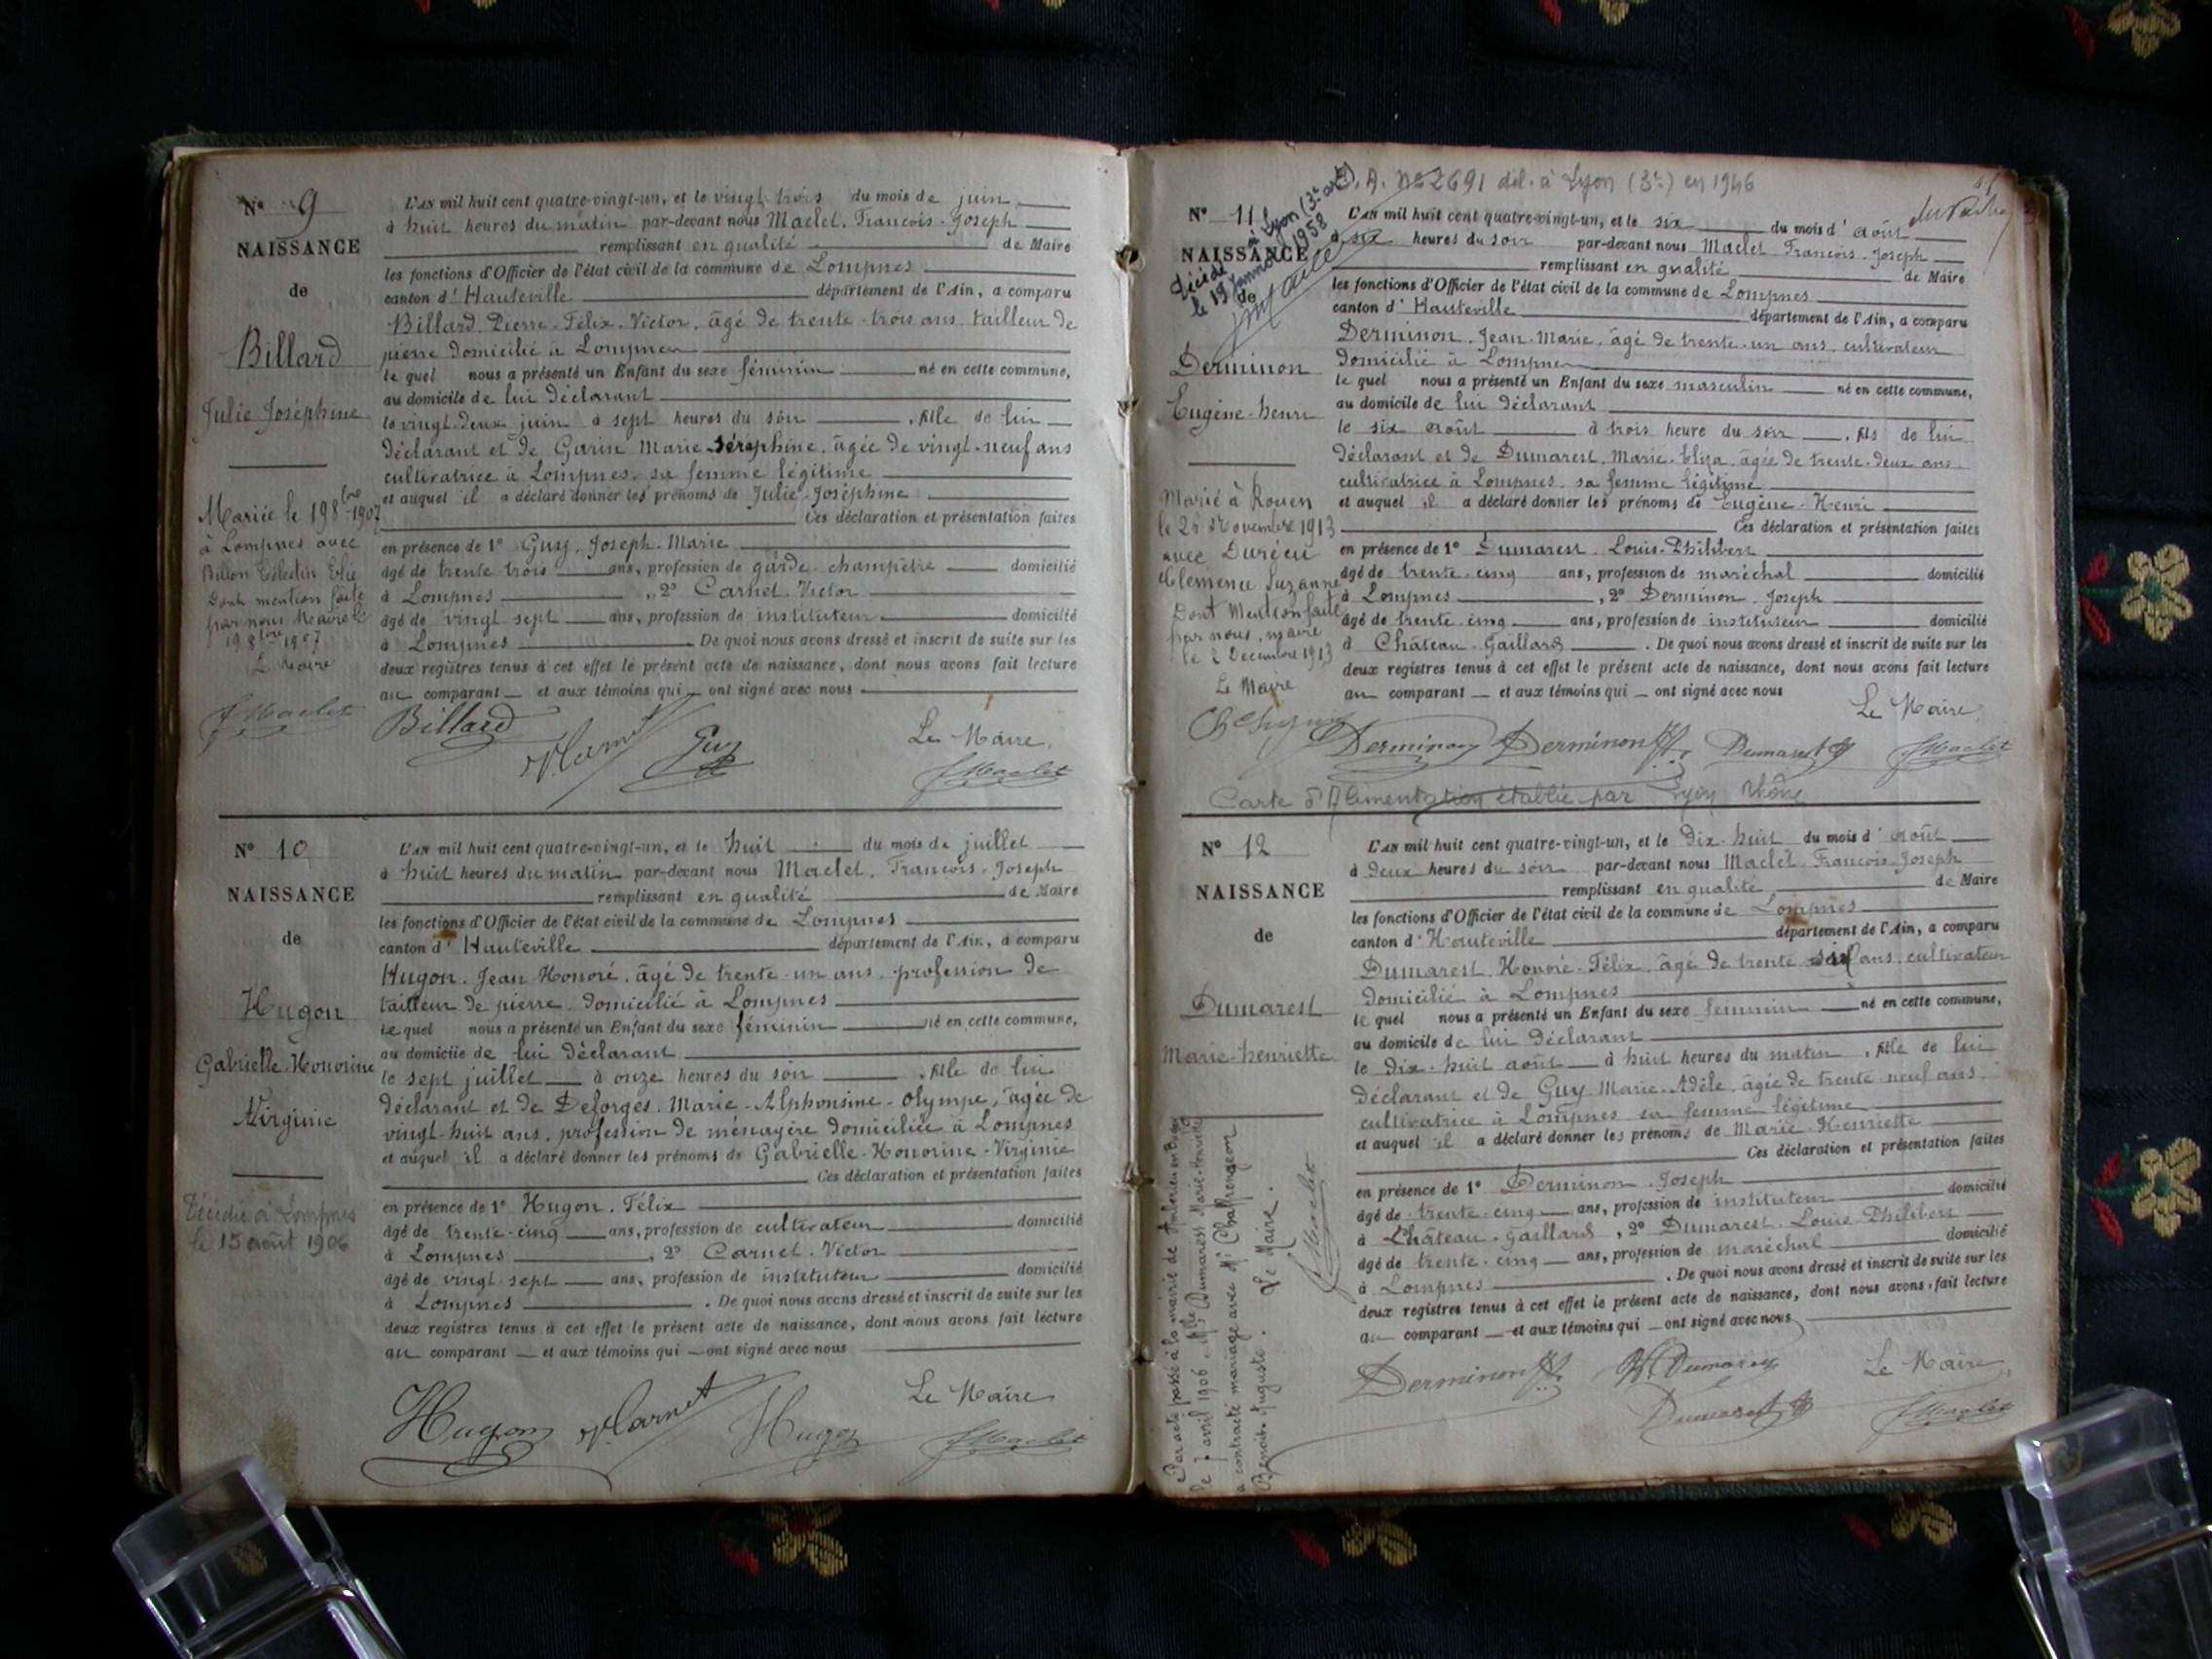 N° 9
NAISSANCE
de
Billard
Julie Joséphine
Mariée le 19 8bre 1907
à Lompnes avec
Billion Célestin Elie
Dont mention faite
par nous Maire le
19 8bre 1907
Le Maire
F Maclet
L'AN mil huit cent quatre-vingt-un, et le vingt-trois du mois de juin
à huit heures du matin par-devant nous Maclet, François-Joseph
remplissant en qualité de Maire
les fonctions d'Officier de l'état civil de la commune de Lompnes
canton d' Hauteville département de l'Ain, a comparu
Billard, Pierre-Félix-Victor, âgé de trente-trois ans, tailleur de
pierre domicilié à Lompnes
le quel nous a présenté un Enfant du sexe féminin né en cette commune,
au domicile de lui déclarant
le vingt-deux juin à sept heures du soir, fille de lui
déclarant et de Garin Marie Séraphine, âgée de vingt-neuf ans
cultivatrice à Lompnes, sa femme légitime
et auquel il a déclaré donner les prénoms de Julie-Joséphine
Ces déclaration et présentation faites
en présence de 1° Guy, Joseph-Marie
âgé de trente trois ans, profession de garde-champêtre domicilié
à Lompnes, 2° Carnet-Victor
âgé de vingt sept ans, profession de instituteur domicilié
à Lompnes De quoi nous avons dressé et inscrit de suite sur les
deux registres tenus à cet effet le présent acte de naissance, dont nous avons fait lecture
au comparant et aux témoins qui ont signé avec nous
Billard VCarnet Guy Le Maire,
F Maclet
N° 10
NAISSANCE
de
Hugon
Gabrielle-Honorine
Virginie
Décédée à Lompnes
le 15 août 1906
L'AN mil huit cent quatre-vingt-un, et le huit du mois de juillet
à huit heures du matin par-devant nous Maclet, François-Joseph
remplissant en qualité de Maire
les fonctions d'Officier de l'état civil de la commune de Lompnes
canton d' Hauteville département de l'Ain, a comparu
Hugon, Jean Honoré, âgé de trente-un ans, profession de
tailleur de pierre, domicilié à Lompnes
le quel nous a présenté un Enfant du sexe féminin né en cette commune,
au domicile de lui déclarant
le sept juillet à onze heures du soir, fille de lui
déclarant et de Deforges, Marie-Alphonsine-Olympe, âgée de
vingt-huit ans, profession de ménagère domiciliée à Lompnes
et auquel il a déclaré donner les prénoms de Gabrielle-Honorine-Virginie
Ces déclaration et présentation faites
en présence de 1° Hugon, Félix
âgé de trente-cinq ans, profession de cultivateur domicilié
à Lompnes, 2° Carnet-Victor
âgé de vingt sept ans, profession de instituteur domicilié
à Lompnes. De quoi nous avons dressé et inscrit de suite sur les
deux registres tenus à cet effet le présent acte de naissance, dont nous avons fait lecture
au comparant et aux témoins qui ont signé avec nous
Hugon VCarnet Hugon Le Maire
F Maclet
D.A. N° 2691 dél. à Lyon (3e) en 1946
N° 11
NAISSANCE
de
Décédé à Lyon (3e arr)
le 19 janvier 1958
Derminon
Eugène-henri
Marié à Rouen
le 25 Novembre 1913
avec Durécu
Clémence Suzanne
Dont Mention faite
par nous, maire
le 2 Décembre 1913
Le Maire
L'AN mil huit cent quatre-vingt-un, et le six du mois d' août
à six heures du soir par-devant nous Maclet François-Joseph
remplissant en qualité de Maire
les fonctions d'Officier de l'état civil de la commune de Lompnes
canton d' Hauteville département de l'Ain, a comparu
Derminon, Jean-Marie, âgé de trente-un ans, cultivateur
domicilié à Lompnes
le quel nous a présenté un Enfant du sexe masculin né en cette commune,
au domicile de lui déclarant
le six août à trois heure du soir, fils de lui
déclarant et de Dumarest, Marie-Eliza, âgée de trente-deux ans
cultivatrice à Lompnes, sa femme légitime
et auquel il a déclaré donner les prénoms de Eugène-Henri
Ces déclaration et présentation faites
en présence de 1° Dumarest, Louis-Philibert
âgé de trente-cinq ans, profession de maréchal domicilié
à Lompnes, 2° Derminon, Joseph
âgé de trente-cinq ans, profession de instituteur domicilié
à Château-Gaillard. De quoi nous avons dressé et inscrit de suite sur les
deux registres tenus à cet effet le présent acte de naissance, dont nous avons fait lecture
au comparant et aux témoins qui ont signé avec nous
Le Maire,
Derminon Derminon Dumarest F Maclet
Carte d'Alimentation établie par Lyon Rhône
N° 12
NAISSANCE
de
Dumarest
Marie-henriette
Par acte passé à la mairie de Ambérieu en Bugey
le 7 avril 1906, Mlle Dumarest Marie-Henriette
a contracté mariage avec Mr Chaffrengeon
Benoit-Auguste. Le Maire.
F Maclet
L'AN mil huit cent quatre-vingt-un, et le dix-huit du mois d' août
à deux heures du soir par-devant nous Maclet François-Joseph
remplissant en qualité de Maire
les fonctions d'Officier de l'état civil de la commune de Lompnes
canton d' Hauteville département de l'Ain, a comparu
Dumarest, Honoré-Félix, âgé de trente ans, cultivateur
domicilié à Lompnes
le quel nous a présenté un Enfant du sexe féminin né en cette commune,
au domicile de lui déclarant
le dix-huit août à huit heures du matin, fille de lui
déclarant et de Guy-Marie-Adèle, âgée de trente neuf ans,
cultivatrice à Lompnes sa femme légitime
et auquel il a déclaré donner les prénoms de Marie-Henriette
Ces déclaration et présentation faites
en présence de 1° Derminon, Joseph
âgé de trente-cinq ans, profession de instituteur domicilié
à Château-Gaillard, 2° Dumarest, Louis-Philibert
âgé de trente-cinq ans, profession de maréchal domicilié
à Lompnes. De quoi nous avons dressé et inscrit de suite sur les
deux registres tenus à cet effet le présent acte de naissance, dont nous avons fait lecture
au comparant et aux témoins qui ont signé avec nous
Derminon H. Dumarest Le Maire,
Dumarest F Maclet